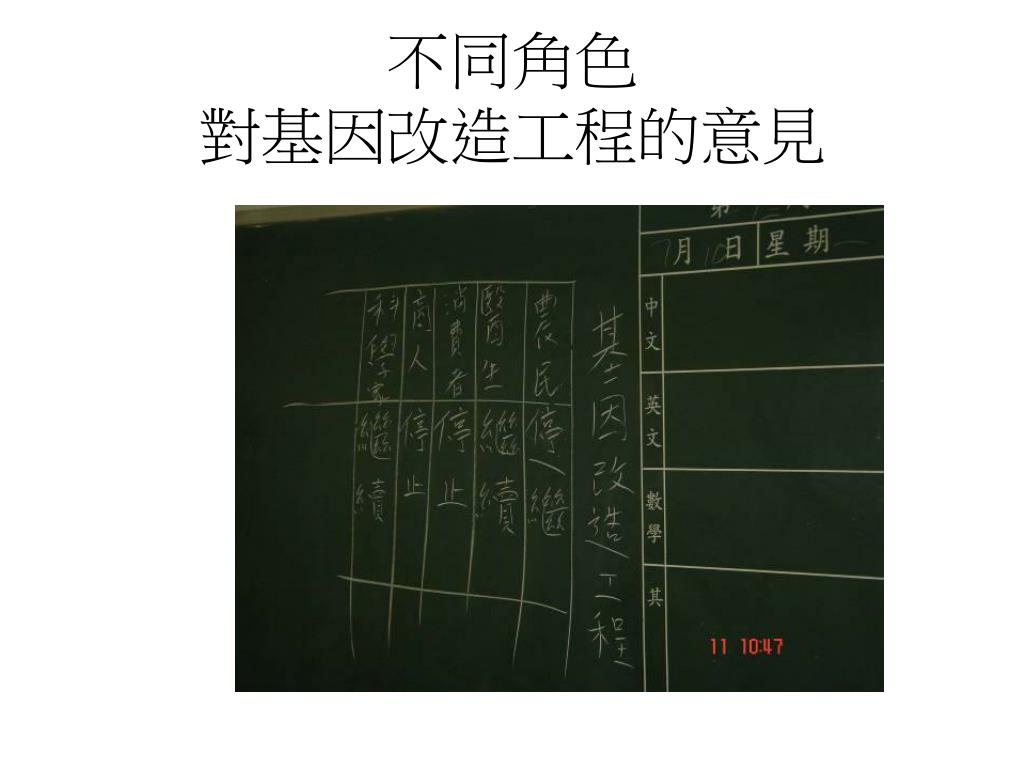 不同角色
對基因改造工程的意見
7月10日 星期一
中文
英文
數學
其
基因改造工程
農民 停/繼
醫生 繼續
消費者 停止
商人 停止
科學家 繼續
11 10:47